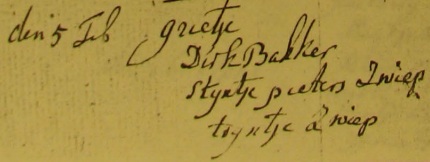 den 5 Feb grietje
Dirk Bakker
Styntje pieters Zwiep
tryntje Zwiep